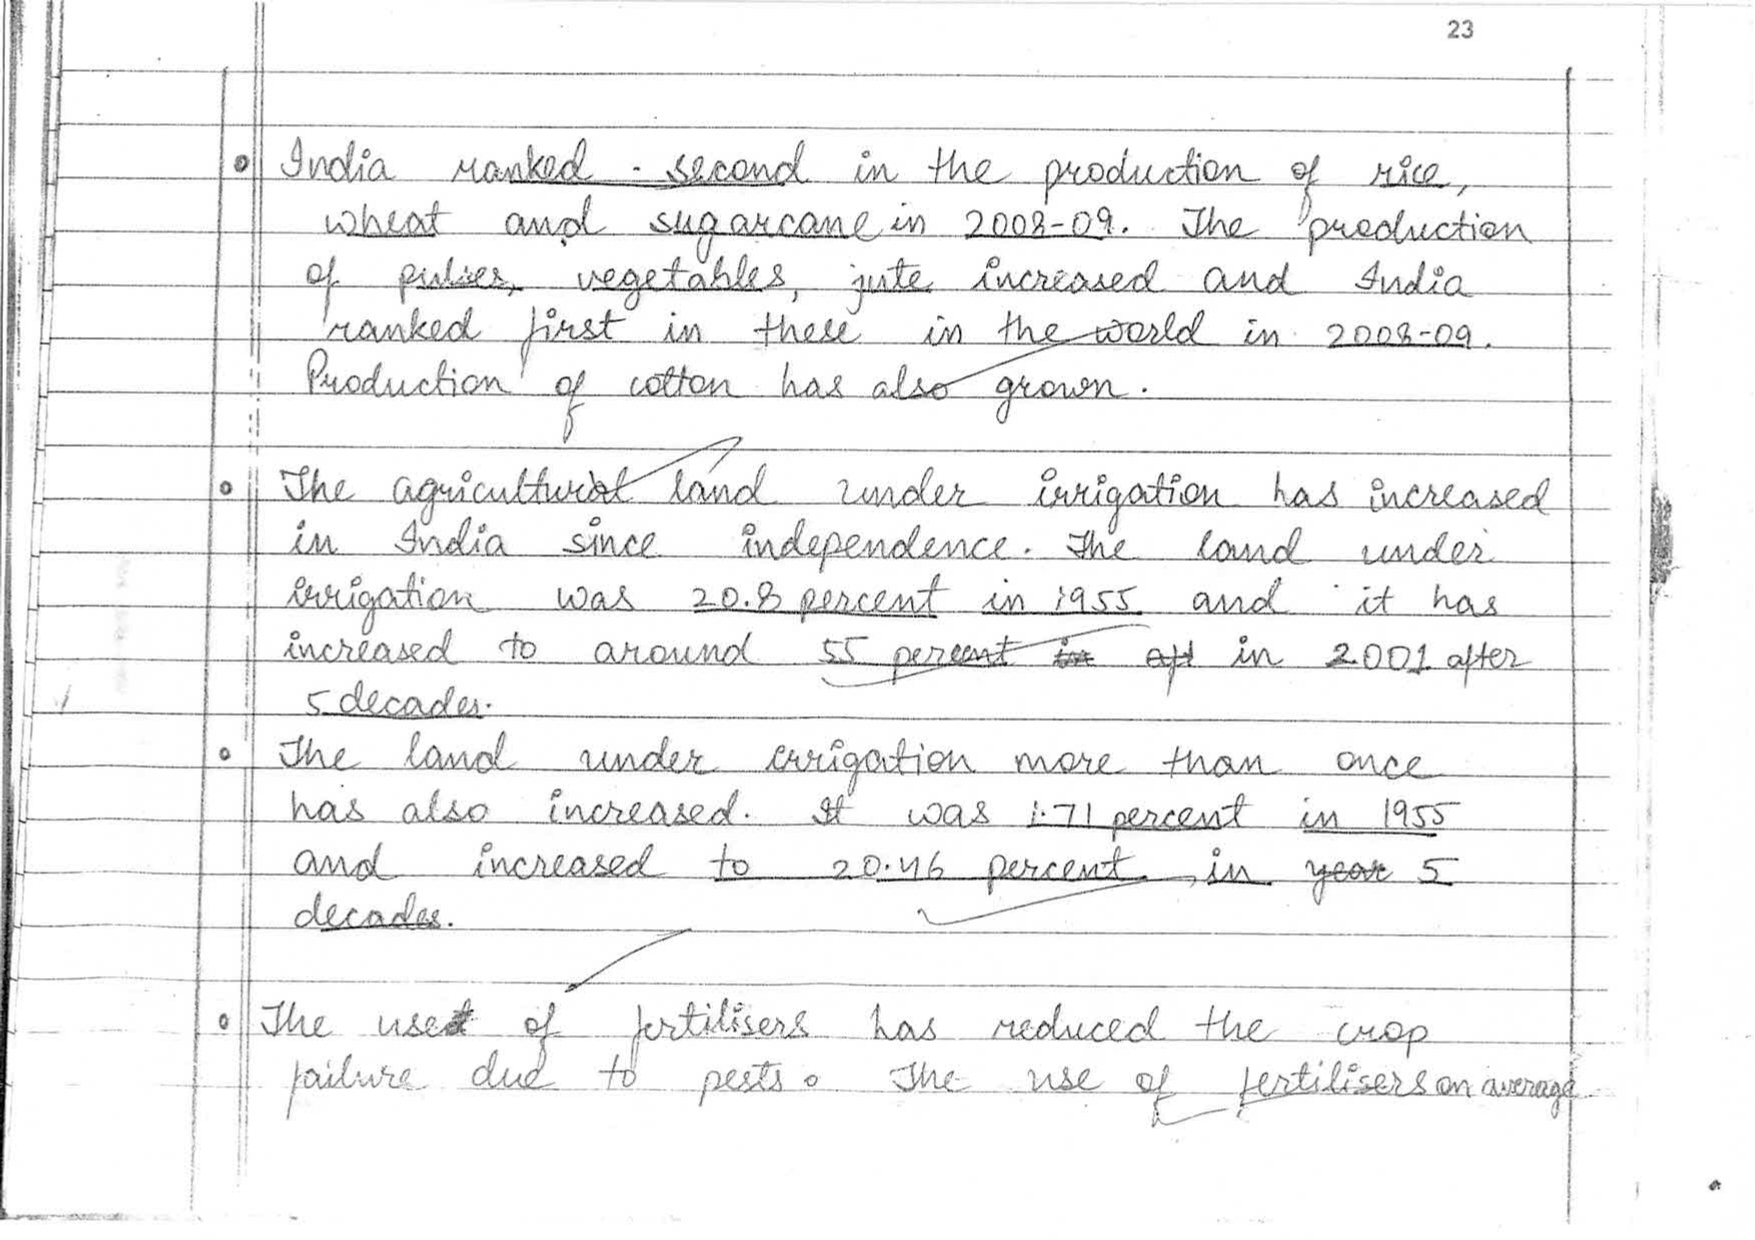 23
• India ranked second in the production of rice,
wheat and sugarcane in 2008-09. The production
of pulses, vegetables, jute increased and India
ranked first in these in the world in 2008-09.
Production of cotton has also grown.
• The agricultural land under irrigation has increased
in India since independence. The land under
irrigation was 20.8 percent in 1955 and it has
increased to around 55 percent in aft in 2001 after
5 decades.
• The land under irrigation more than once
has also increased. It was 1.71 percent in 1955
and increased to 20.46 percent, in year 5
decades.
• The use of fertilisers has reduced the crop
failure due to pests. The use of fertilisers on average